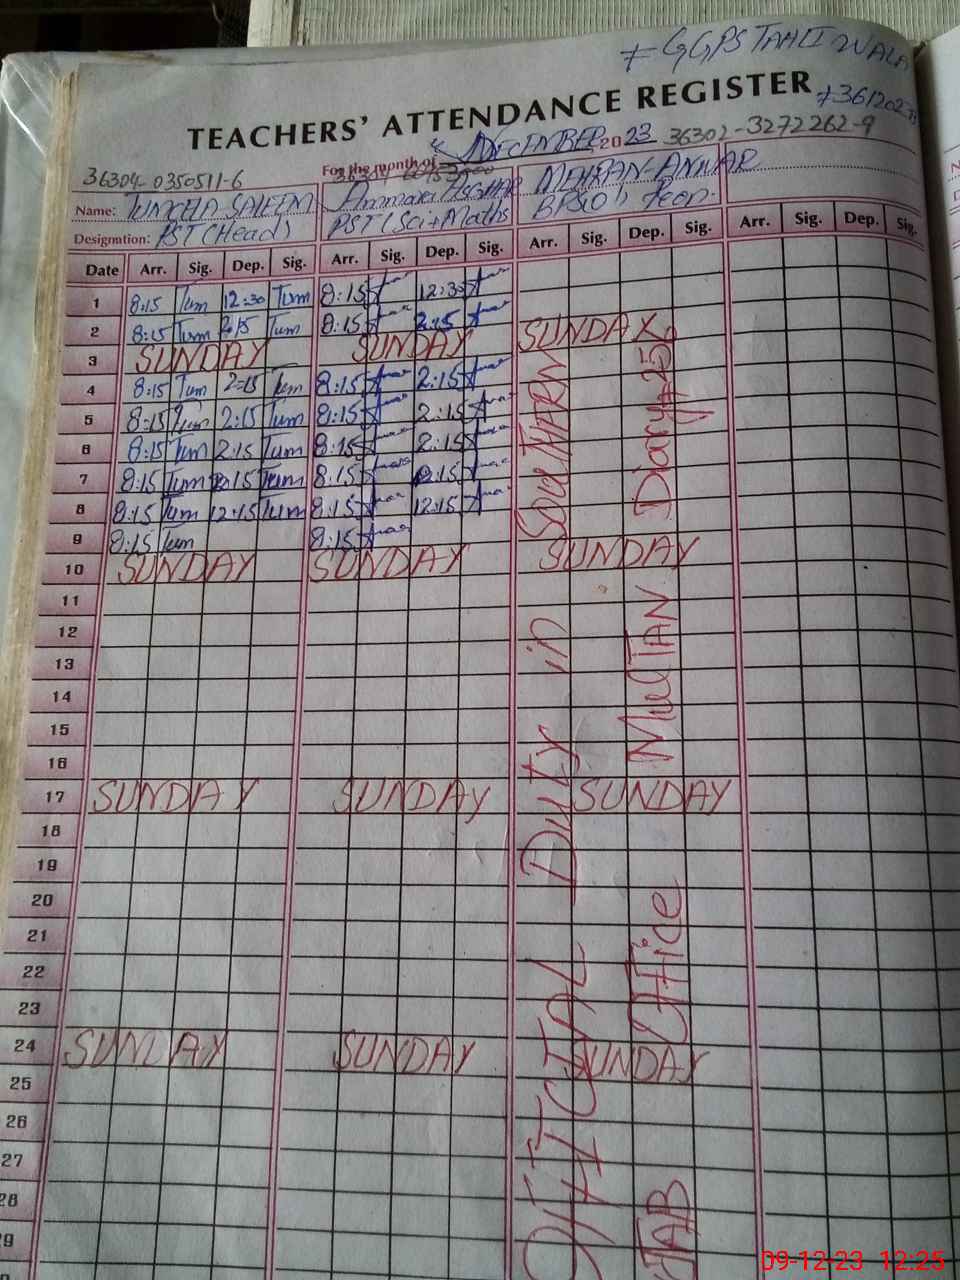 # GGPS TAHLI WALA
TEACHERS' ATTENDANCE REGISTER
For the month of DECEMBER 2023 36302-3272262-9
36304-0350511-6
Name: SALEEM MEHRAN ANWAR
Designtion: PST (Head) PST (Sci+Maths
Date Arr. Sig. Dep. Sig. Arr. Sig. Dep. Sig. Arr. Sig. Dep. Sig. Arr. Sig. Dep. Sig.
1 8:15 Tum 12:30 Tum 8:15 12:30
2 8:15 Tum 2:15 Tum 8:15 2:15 SUNDAY
3 SUNDAY SUNDAY
4 8:15 Tum 2:15 Tum 8:15 2:15
5 8:15 Tum 2:15 Tum 8:15 2:15
6 8:15 Tum 2:15 Tum 8:15 2:15
7 8:15 Tum 2:15 Tum 8:15 2:15
8 8:15 Tum 12:15 Tum 8:15 12:15
9 8:15 Tum 8:15
10 SUNDAY SUNDAY SUNDAY
11
12
13
14
15
16
17 SUNDAY SUNDAY SUNDAY
18
19
20
21
22
23
24 SUNDAY SUNDAY SUNDAY
25
26
27
28
29
OFFICIAL Duty in South
Office MulTAN Diary
09-12-23 12:25